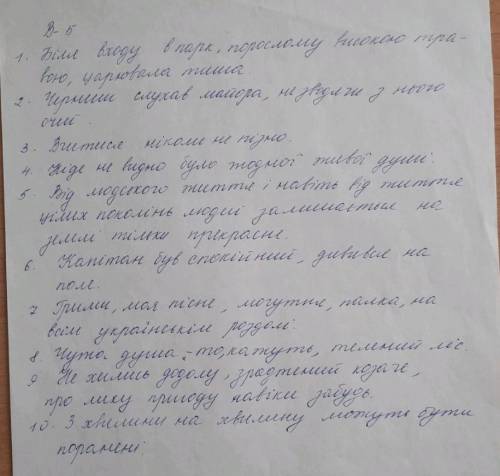 В-5
1. Біля входу в парк, порослому високою тра-
вою, царювала тиша
2. Черниш слухав майора, не зводячи з нього
очей.
3. Вчитися ніколи не пізно.
4. Ніде не видно було жодної живої душі.
5. Від людського життя і навіть від життя
цілих поколінь людей залишається на
землі тільки прекрасне.
6. Капітан був спокійний, дивився на
поле.
7 Грими, моя пісне, могутня, палка, на
всім українськім роздолі.
8. Чужа душа - то, кажуть, темний ліс.
9 Не хились додолу, зраджений козаче,
про лиху пригоду навіки забудь.
10. З хвилини на хвилину можуть бути
поранені.